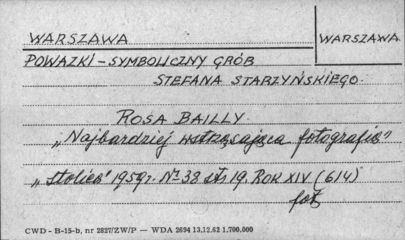 WARSZAWA
WARSZAWA
POWAZKI – SYMBOLICZNY GRÓB
STEFANA STARZYŃSKIEGO.
ROSA BAILLY.
„Najbardziej wstrząsająca fotografia"
„Stolica" 1959r. Nr 38 str 19. ROK XIV (614)
fot
CWD - B-15-b, nr 2827/ZW/P — WDA 2694 13.12.62 1.700.000